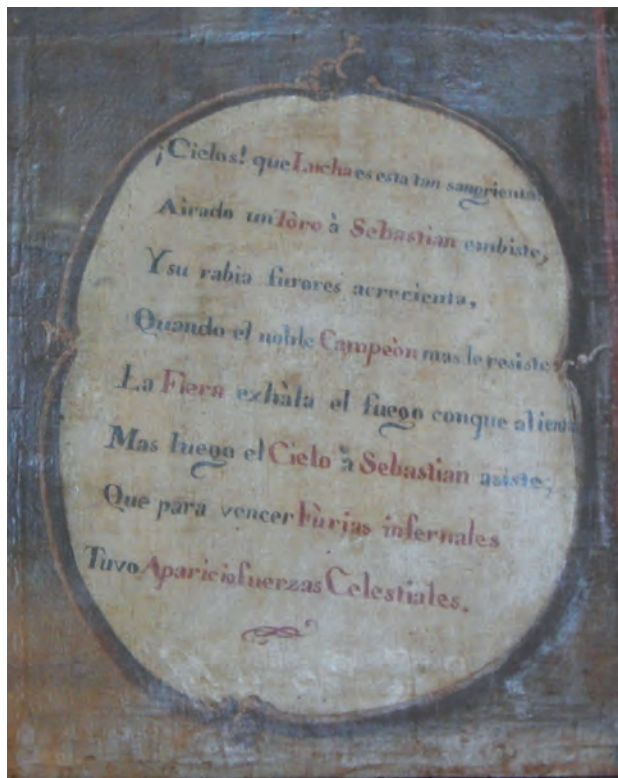 ¡Cielos! que Lucha es esta tan sangrienta!
Airado un Tòro à Sebastian embiste,
Y su rabia furores acrecienta,
Quando el noble Campeòn mas le resiste
La Fiera exhàla el fuego conque alienta
Mas luego el Cielo à Sebastian asiste;
Que para vencer Fùrias infernales
Tuvo Aparicio fuerzas Celestiales.